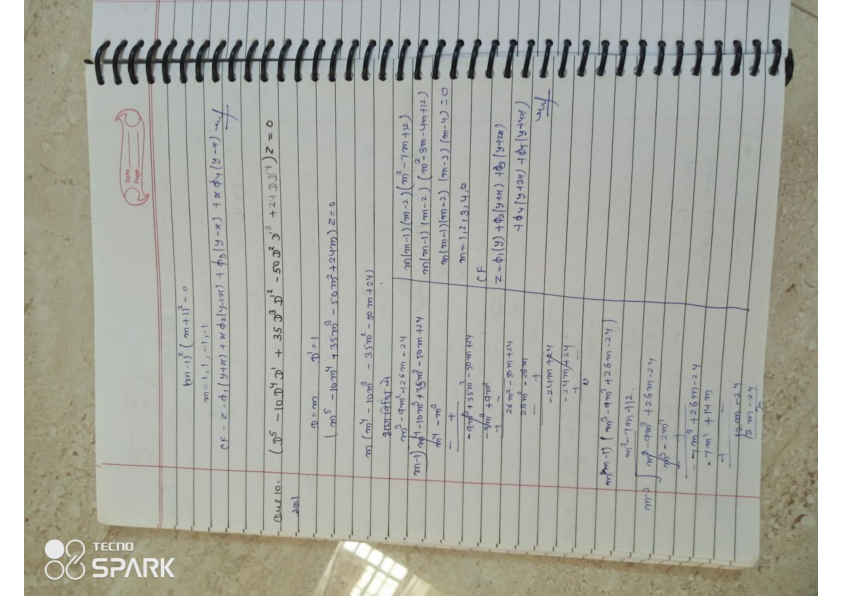 (m-1)² (m+1)² = 0
m = 1, 1, -1, -1
CF = z = ϕ₁(y+x) + xϕ₂(y+x) + ϕ₃(y-x) + xϕ₄(y-x)
Que 10. (D⁵ - 10D⁴D' + 35D³D'² - 50D²D'³ + 24DD'⁴) Z = 0
D = m D' = 1
(m⁵ - 10m⁴ + 35m³ - 50m² + 24m) Z = 0
m(m⁴ - 10m³ - 35m² - 50m + 24)
भाग विधि से
m³ - 9m² + 26m - 24
m-1) m⁴ - 10m³ + 35m² - 50m + 24
m⁴ - m³
- +
- 9m³ + 35m² - 50m + 24
- 9m³ + 9m²
+ -
26m² - 50m + 24
26m² - 26m
- +
- 24m + 24
- 24m + 24
+ -
0
m(m-1) (m³ - 9m² + 26m - 24)
m² - 7m + 12
m-2 m³ - 9m² + 26m - 24
m³ - 2m²
- +
- 7m² + 26m - 24
- 7m² + 14m
+ -
12m - 24
12m - 24
m(m-1)(m-2)(m² - 7m + 12)
m(m-1)(m-2)(m² - 3m - 4m + 12)
m(m-1)(m-2)(m-3)(m-4) = 0
m = 1, 2, 3, 4, 0
CF
Z = ϕ₁(y) + ϕ₂(y+x) + ϕ₃(y+2x)
+ ϕ₄(y+3x) + ϕ₅(y+4x)
Date
Page
TECNO
SPARK